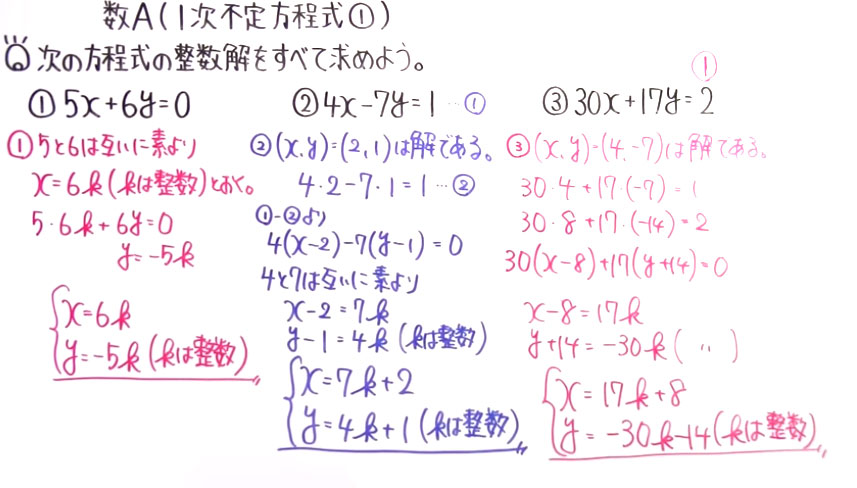 数A(1次不定方程式①)
次の方程式の整数解をすべて求めよう。
① 5x+6y=0
① 5と6は互いに素より
x=6k(kは整数)とおく。
5・6k+6y=0
y=-5k
x=6k
y=-5k(kは整数)
② 4x-7y=1 …①
② (x,y)=(2,1)は解である。
4・2-7・1=1…②
①-②より
4(x-2)-7(y-1)=0
4と7は互いに素より
x-2=7k
y-1=4k (kは整数)
x=7k+2
y=4k+1(kは整数)
①
③ 30x+17y=2
③ (x,y)=(4,-7)は解である。
30・4+17・(-7)=1
30・8+17・(-14)=2
30(x-8)+17(y+14)=0
x-8=17k
y+14=-30k( 〃 )
x=17k+8
y=-30k-14(kは整数)